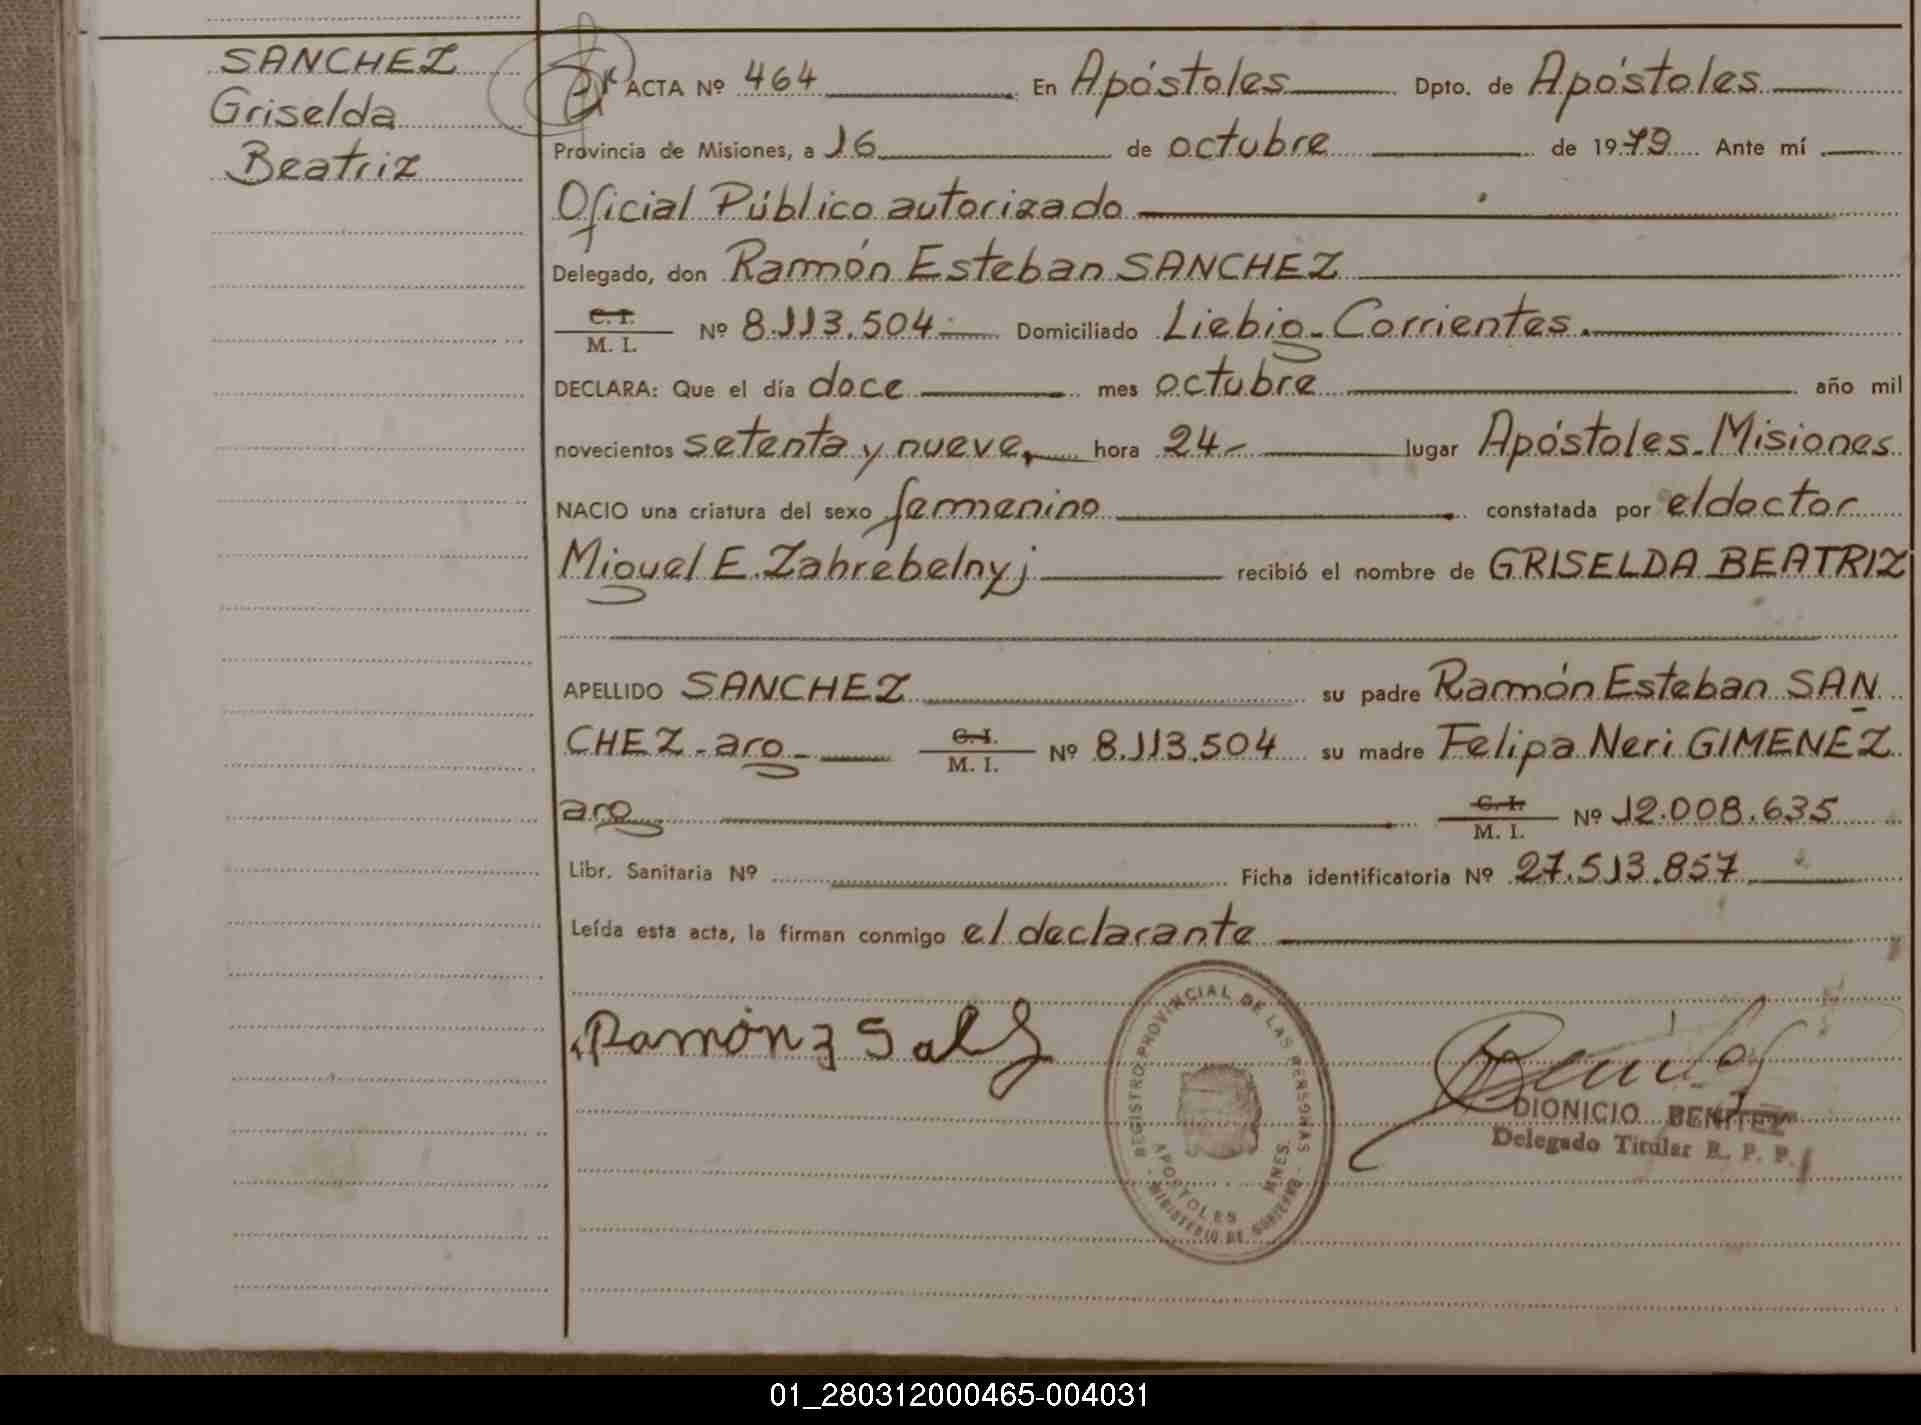 SANCHEZ
Griselda
Beatriz
ACTA Nº 464 En Apóstoles Dpto. de Apóstoles
Provincia de Misiones, a 16 de octubre de 1979 Ante mí
Oficial Público autorizado
Delegado, don Ramón Esteban SANCHEZ
C. I.
M. I. Nº 8.113.504 Domiciliado Liebig-Corrientes.
DECLARA: Que el día doce mes octubre año mil
novecientos setenta y nueve, hora 24- lugar Apóstoles-Misiones
NACIO una criatura del sexo femenino constatada por el doctor
Miguel E. Zahrebelnyj recibió el nombre de GRISELDA BEATRIZ
APELLIDO SANCHEZ su padre Ramón Esteban SAN
CHEZ-arg- C. I. M. I. Nº 8.113.504 su madre Felipa Neri GIMENEZ
arg C. I. M. I. Nº 12.008.635
Libr. Sanitaria Nº Ficha identificatoria Nº 27.513.857
Leída esta acta, la firman conmigo el declarante
Ramón
REGISTRO PROVINCIAL DE LAS PERSONAS
APOSTOLES MNES.
MINISTERIO DE GOBIERNO
DIONICIO BENITEZ
Delegado Titular R. P. P.
01_280312000465-004031